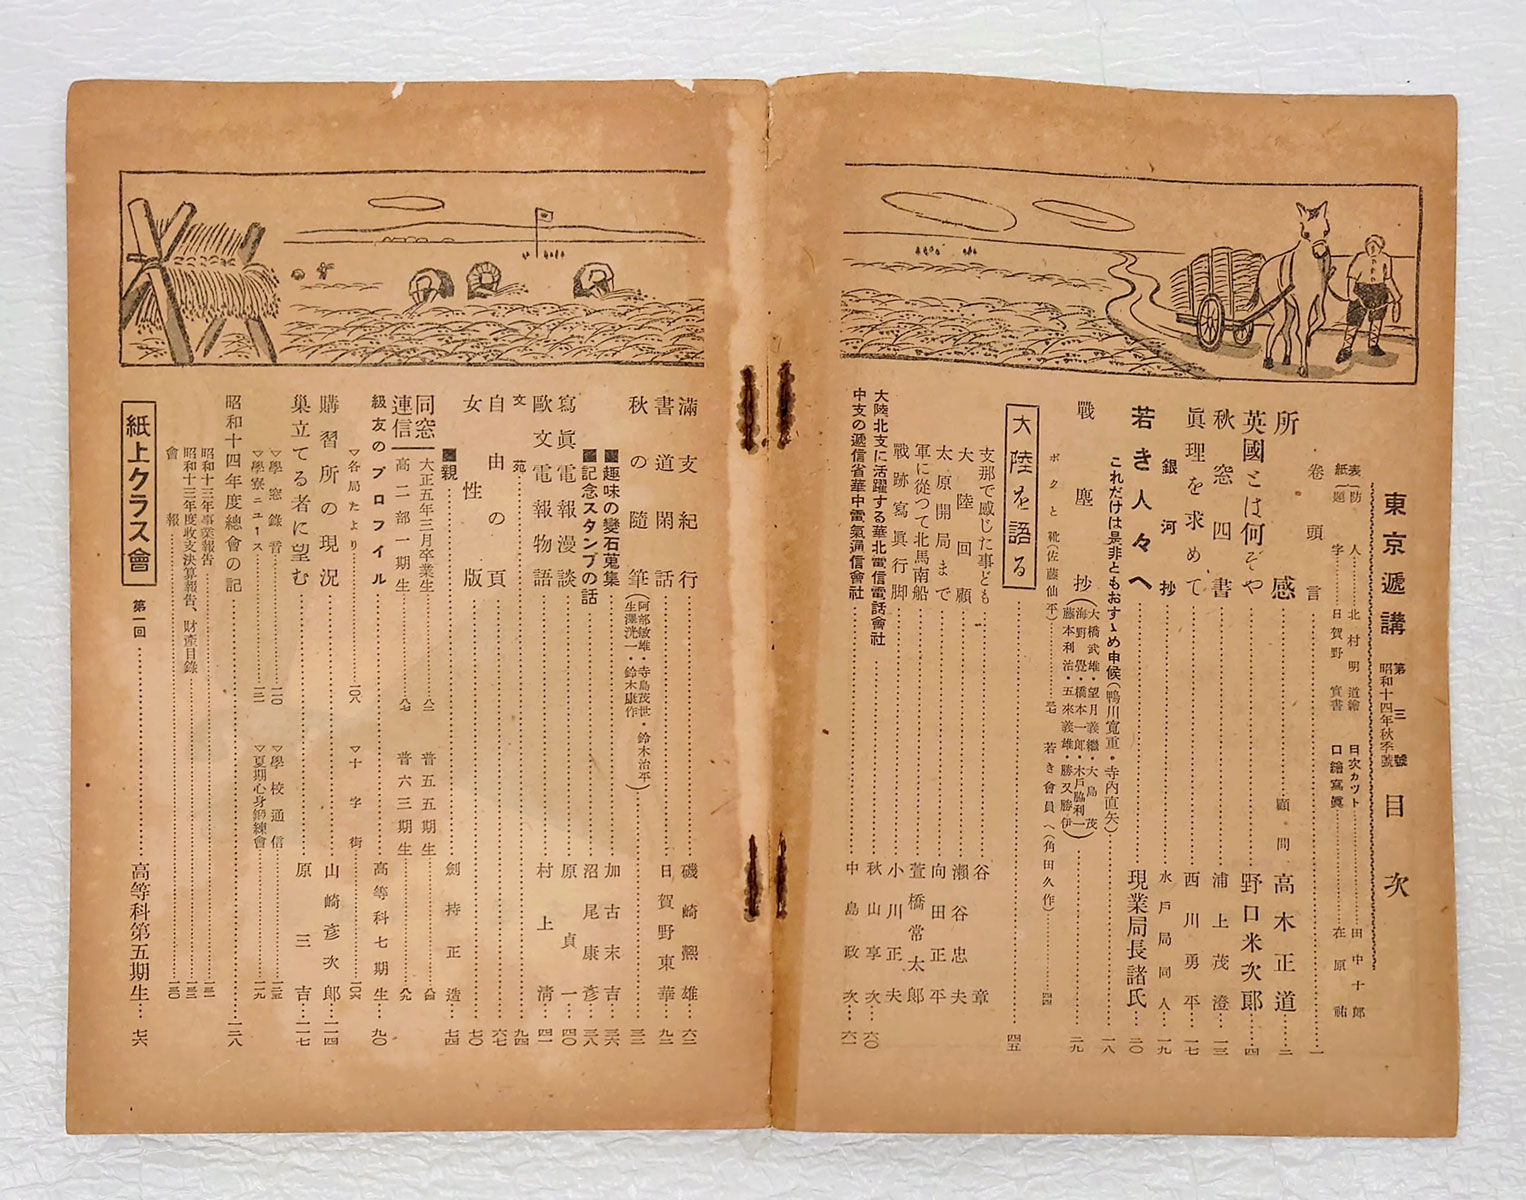 東京遞講 第三號 昭和十四年秋季號 目次
表紙(防人……北村明道繪
題字……日賀野實書
目次カット……田中十郎
口繪寫眞……在原祐
卷頭言……一
所感……顧問 高木正道……二
英國とは何ぞや……野口米次郎……四
秋窓四書……浦上茂澄……一三
眞理を求めて……西川勇平……一七
銀河抄……水戸局同人……一九
若き人々へ……現業局長諸氏……二〇
これだけは是非ともおすゝめ申候(鴨川寬重・寺内直矢)……一八
戰塵抄(大橋武雄・望月義繼・大島茂
海野覺・橋本一郎・木戸脇利一
藤本利治・五來義雄・勝又勝伊)……二九
ボクと靴(佐藤仙平)……三七
若き會員へ(角田久作)……四四
大陸を語る……四五
支那で感じた事ども……谷章
大陸回顧……瀨谷忠夫
太原開局まで……向田正平
軍に從つて北馬南船……萱橋常太郎
戰跡寫眞行脚……小川正夫
大陸北支に活躍する華北電信電話會社……秋山享次……六〇
中支の遞信省華中電氣通信會社……中島政次……六一
滿支紀行……磯崎熙雄……六二
書道閑話……日賀野東華……九二
秋の隨筆(阿部敏雄・寺島茂世・鈴木治平
生澤洸一・鈴木康作)……三二
■趣味の變石蒐集……加古末吉……三六
■記念スタンプの話……沼尾康彥……三八
寫眞電報漫談……原貞一……四〇
歐文電報物語……村上淸……四一
文苑……九四
自由の頁……六七
女性の版……七〇
■親……劍持正造……七四
同窓連信
大正五年三月卒業生……八二
高二部一期生……八七
普五五期生……八四
普六三期生……八九
級友のプロフイル……高等科七期生……九〇
▽各局たより……一〇八
▽十字街……一〇六
購習所の現況……山崎彥次郎……一一四
巢立てる者に望む……原三吉……一一七
▽學窓錄音……一二〇
▽學校通信……一二五
▽學寮ニュース……一二一
▽夏期心身鍛練會……一一九
昭和十四年度總會の記……一二八
昭和十三年事業報告……一三一
昭和十三年度收支決算報告、財產目錄……一三三
會報……一三〇
紙上クラス會 第一回……高等科第五期生……七六